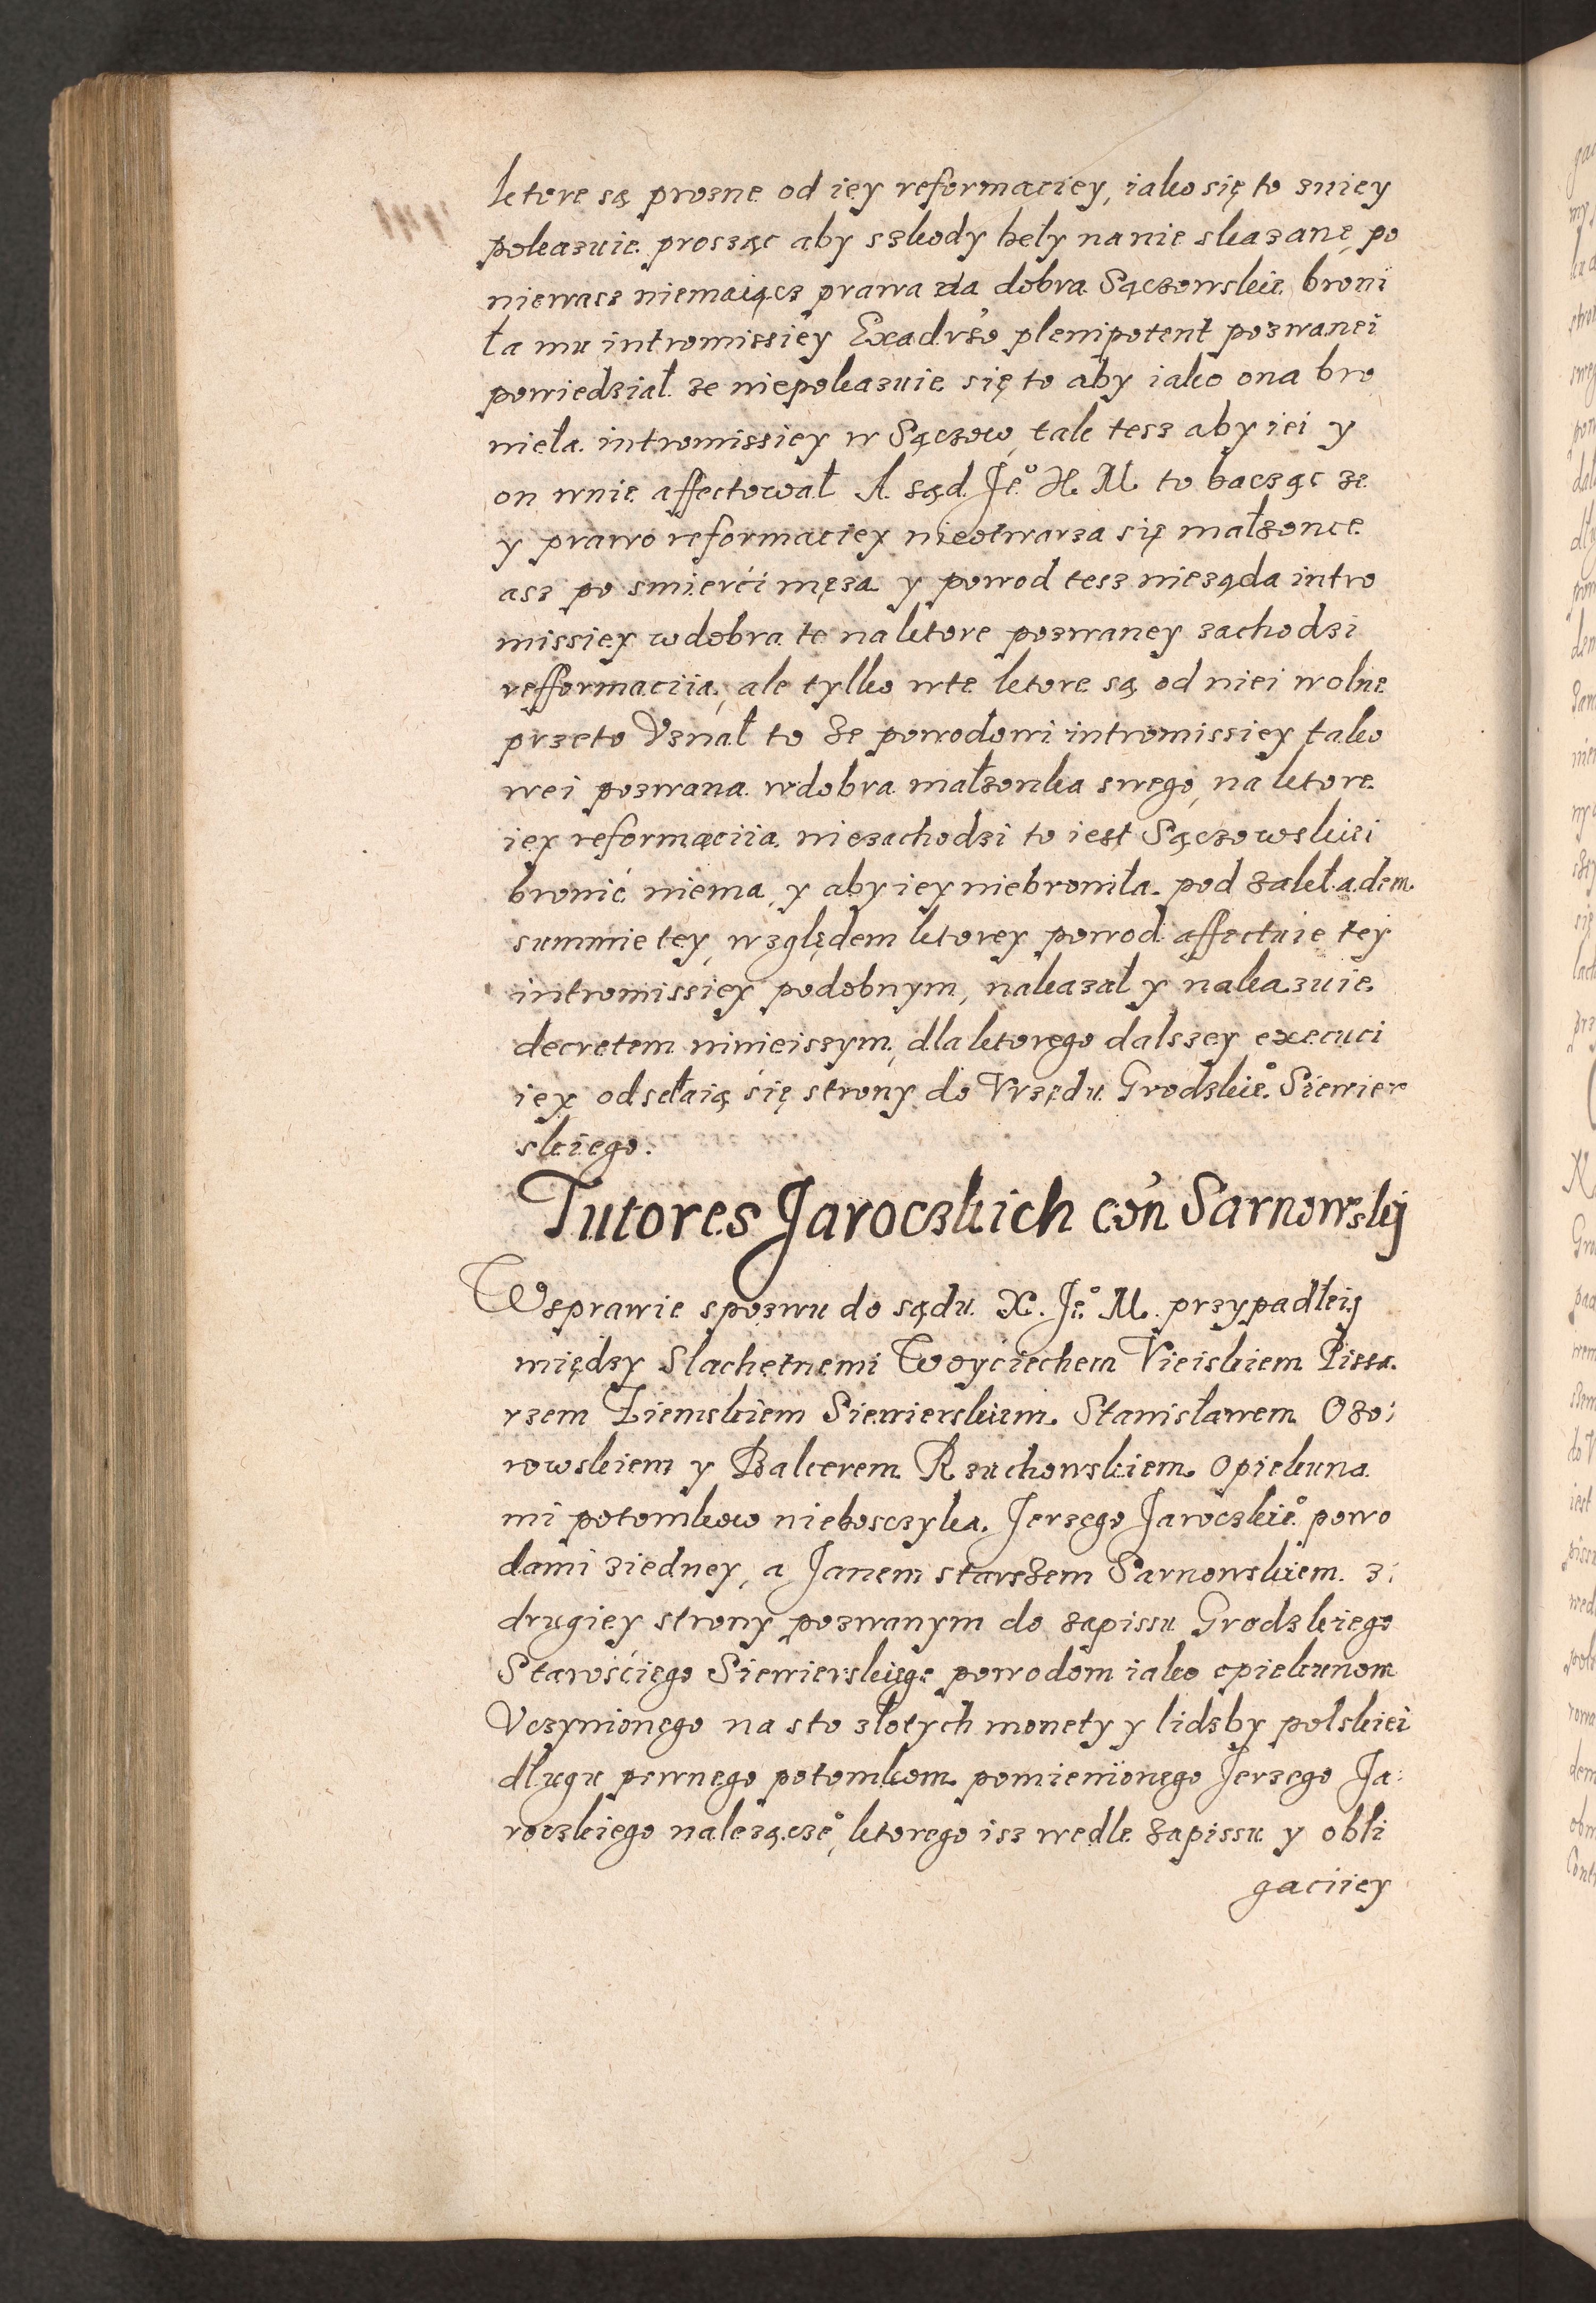 ktore są prozne od iey reformaciey, iako się to zniey
pokazuie prosząc aby szkody bely na nie skazane, po
niewasz niemaiącz prawa na dobra Sączowskie broni
ła mu intromissiey Exadvso plenipotent pozwanei
powiedział ze niepokazuie się to aby iako ona bro
nieła intromissiey w Sączow, tak tesz aby iei y
on wnie affectował A sąd Je° X. M. to bacząc ze
y prawo reformaciey nieotwarza się małzonce
asz po smierći męza y powod tesz nieząda intro
missiey w dobra te na ktore pozwaney zachodzi
refformaciia, ale tylko wte ktore są od niei wolne
przeto Vznał to ze powodowi intromissiey tako
wei pozwana w dobra małzonka swego, na ktore
iey reformaciia niezachodzi to iest Sączowskiei
bronić niema, y aby iey niebroniła pod zakładem
summie tey, względem ktorey powod affectuie tey
intromissiey podobnym, nakazał y nakazuie
decretem ninieiszym, dla ktorego dalszey execuci
iey odsełaią się strony do Vrzędu Grodzkie° Siewier
skiego.
Tutores Jaroczkich con Sarnowskij
W sprawie spozwu do sądu X. Je° M. przypadłeij
między Slachetnemi Woyciechem Vieiskiem Pissa
rzem Ziemskiem Siewierskiem Stanisławem Ozo:
rowskiem y Balcerem Rzuchowskiem Opiekuna
mi potomkow niebosczyka Jerzego Jaroczkie° powo
dami ziedney, a Janem starszem Sarnowskiem z:
drugiey strony pozwanym do zapissu Grodzkiego
Starośćiego Siewierskiego powodom iako opiekunom
Vczynionego na sto złotych monety y lidzby polskiei
długu pewnego potomkom pomienionego Jerzego Ja:
roczkiego nalezącze°, ktorego isz wedle zapissu y obli
gaciiey